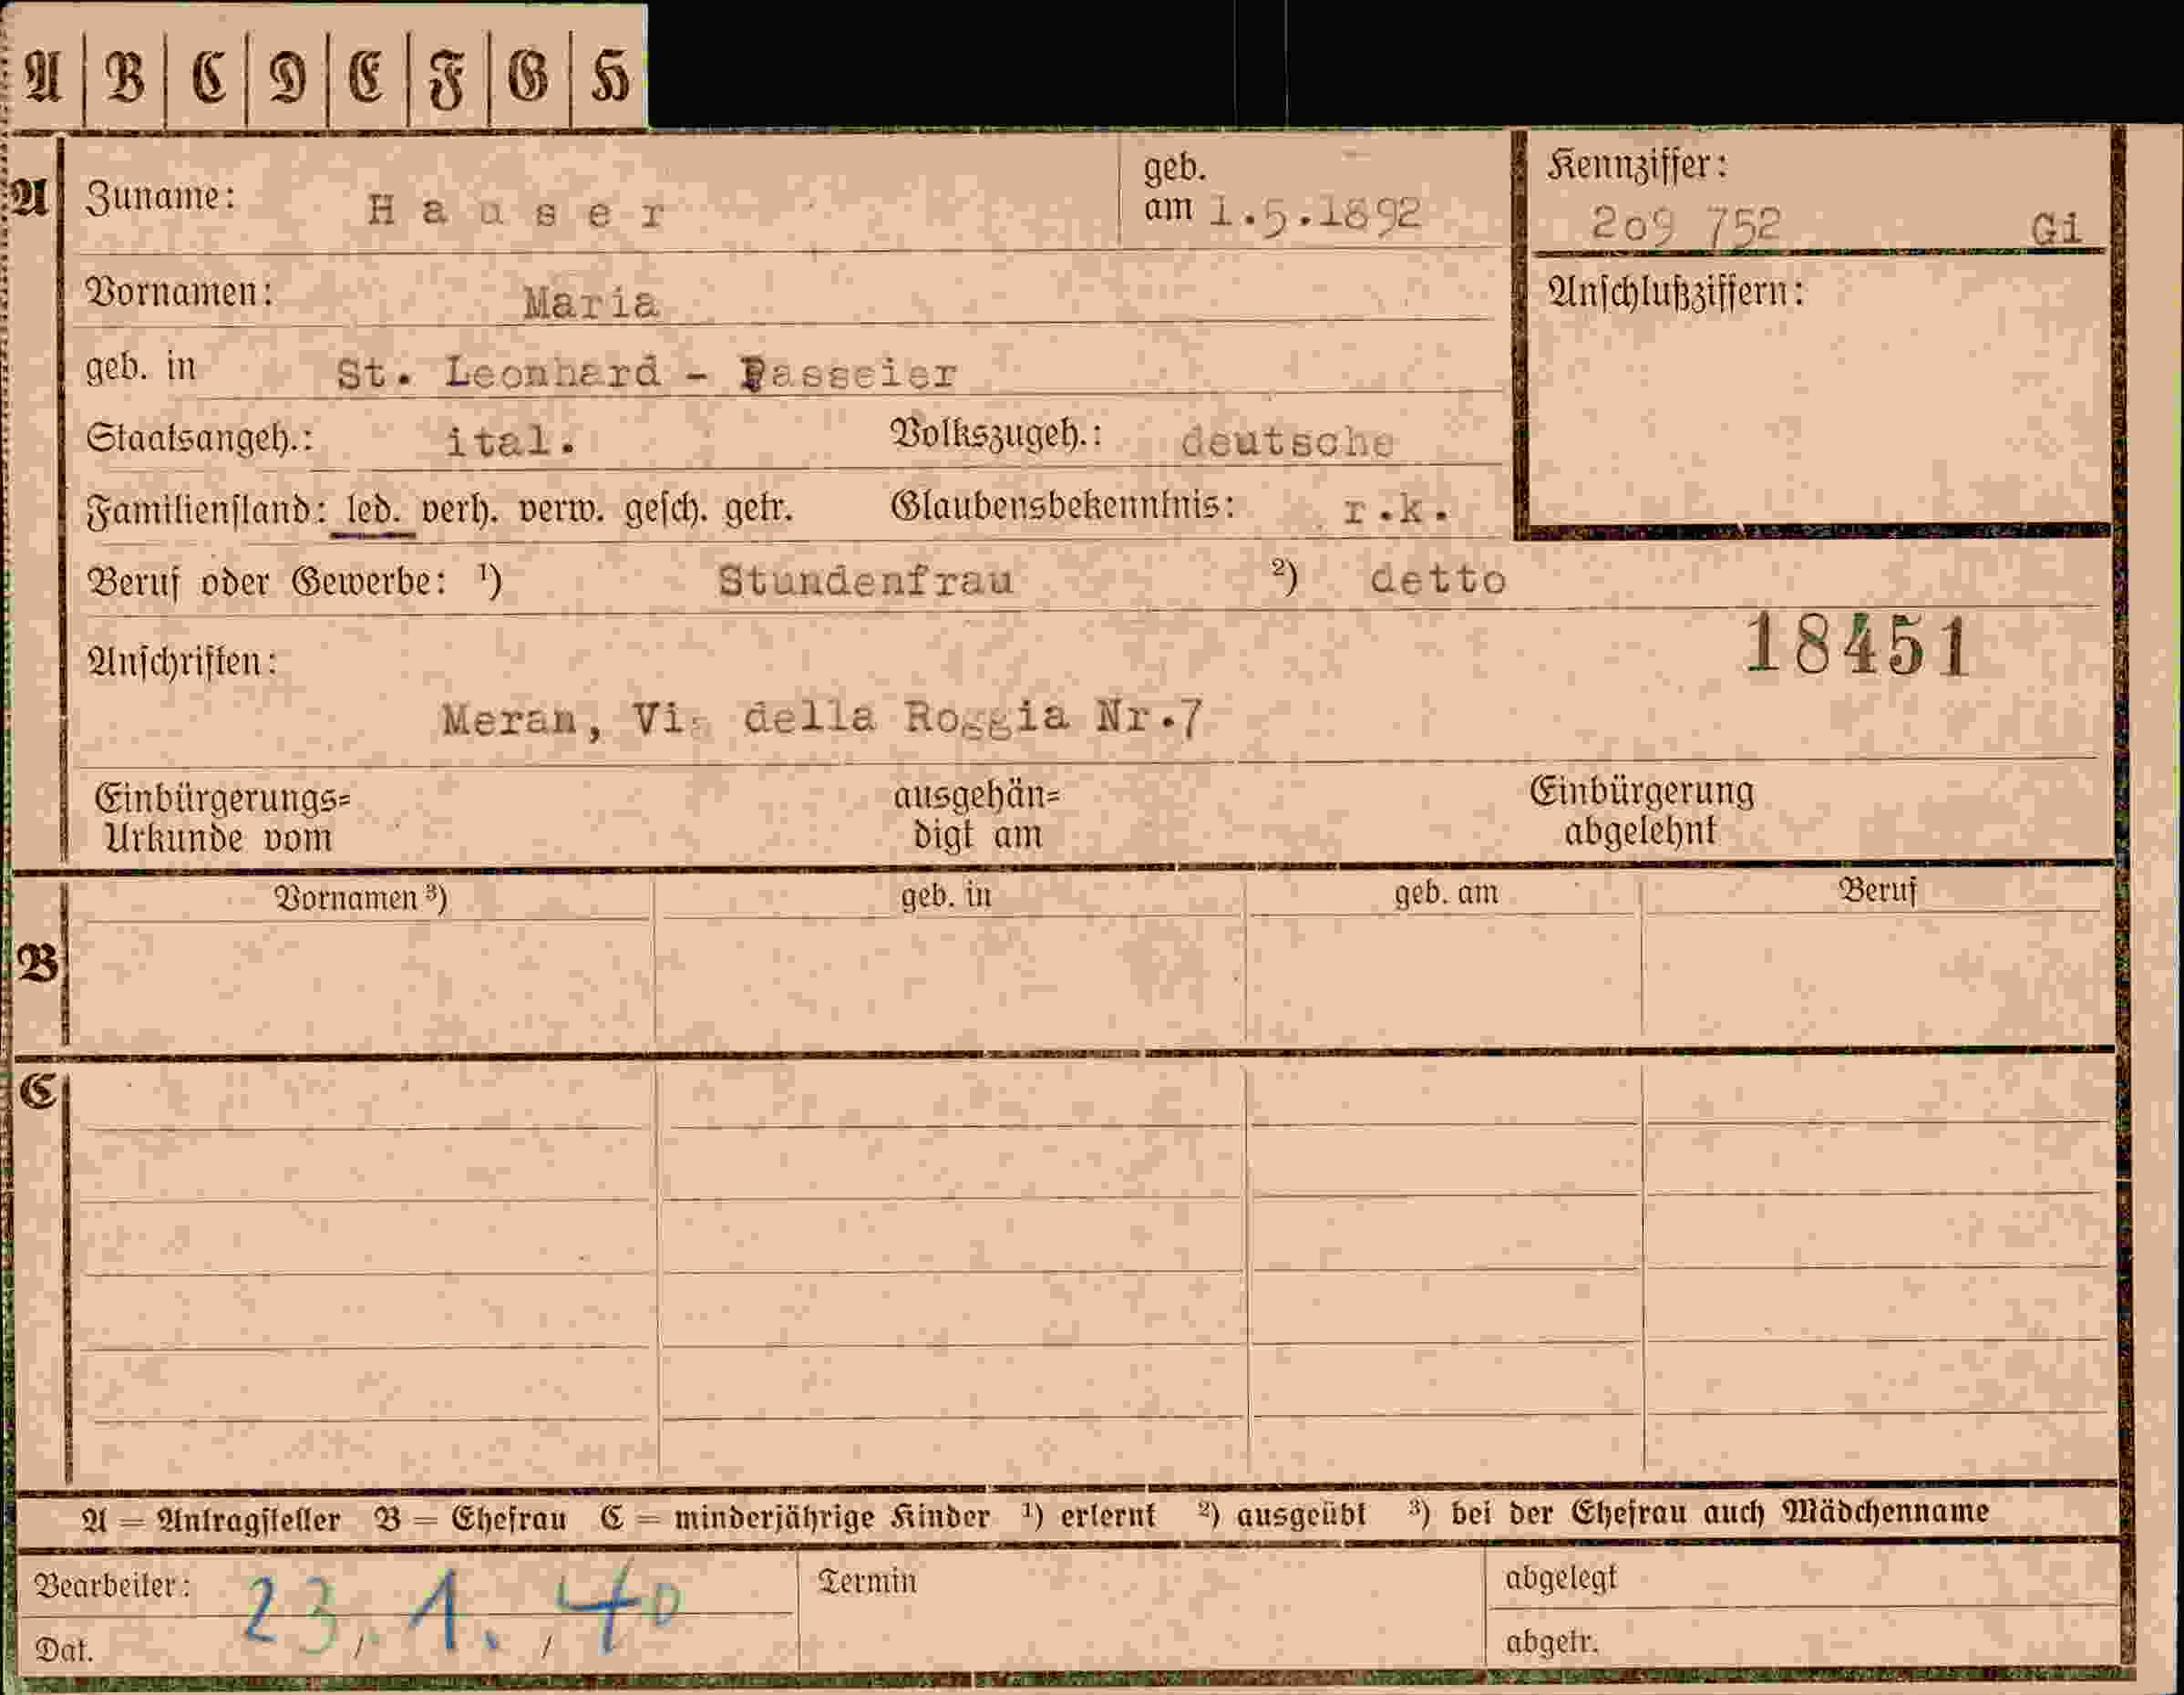 A B C D E F G H
A Zuname: Hauser geb. am 1.5.1892 Kennziffer: 209 752 Gi
Vornamen: Maria Anschlußziffern:
geb. in St. Leonhard - Passeier
Staatsangeh.: ital. Volkszugeh.: deutsche
Familienstand: led. verh. verw. gesch. getr. Glaubensbekenntnis: r.k.
Beruf oder Gewerbe: ¹) Stundenfrau ²) detto
18451
Anschriften:
Meran, Via della Roggia Nr.7
Einbürgerungs= ausgehän= Einbürgerung
Urkunde vom digt am abgelehnt
Vornamen ³) geb. in geb. am Beruf
B
C
A = Antragsteller B = Ehefrau C = minderjährige Kinder ¹) erlernt ²) ausgeübt ³) bei der Ehefrau auch Mädchenname
Bearbeiter: 23. 1. 40 Termin abgelegt
Dat. / / abgetr.